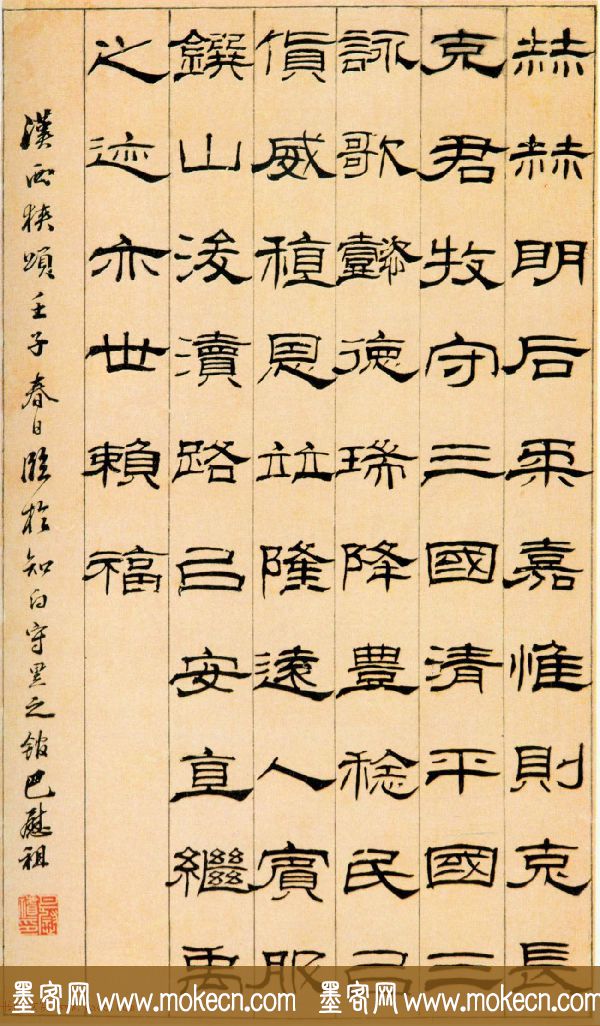 赫赫明后柔嘉惟則克長
克君牧守三國清平國三
詠歌懿德瑞降豊稔民㠯
貨威稙恩竝隆遠人賓服
鐉山浚瀆路㠯安直繼禹
之迹亦世賴福
漢西狹頌壬子春日臨於知白守黑之館巴慰祖
墨客网 www.mokecn.com 墨客网 www.mokecn.com